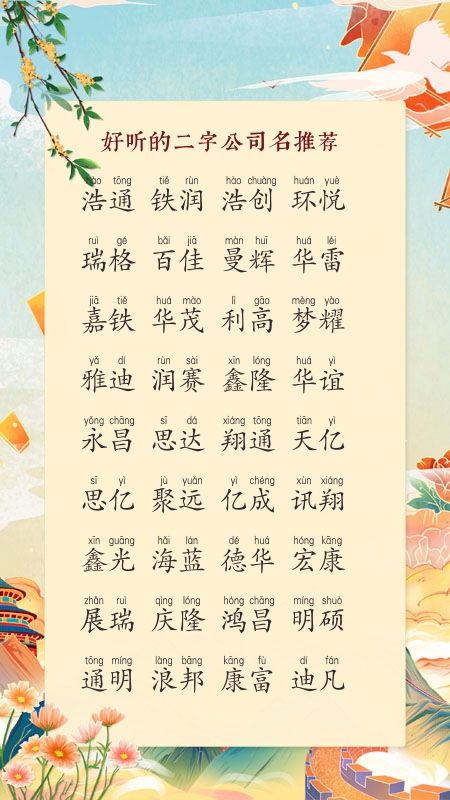 好听的二字公司名推荐
hào tōng tiě rùn hào chuàng huán yuè
浩通 铁润 浩创 环悦
ruì gé bǎi jiā màn huī huá léi
瑞格 百佳 曼辉 华雷
jiā tiě huá mào lì gāo mèng yào
嘉铁 华茂 利高 梦耀
yǎ dí rùn sài xīn lóng huá yì
雅迪 润赛 鑫隆 华谊
yǒng chāng sī dá xiáng tōng tiān yì
永昌 思达 翔通 天亿
sī yì jù yuǎn yì chéng xùn xiáng
思亿 聚远 亿成 讯翔
xīn guāng hǎi lán dé huá hóng kāng
鑫光 海蓝 德华 宏康
zhǎn ruì qìng lóng hóng chāng míng shuò
展瑞 庆隆 鸿昌 明硕
tōng míng làng bāng kāng fù dí fán
通明 浪邦 康富 迪凡